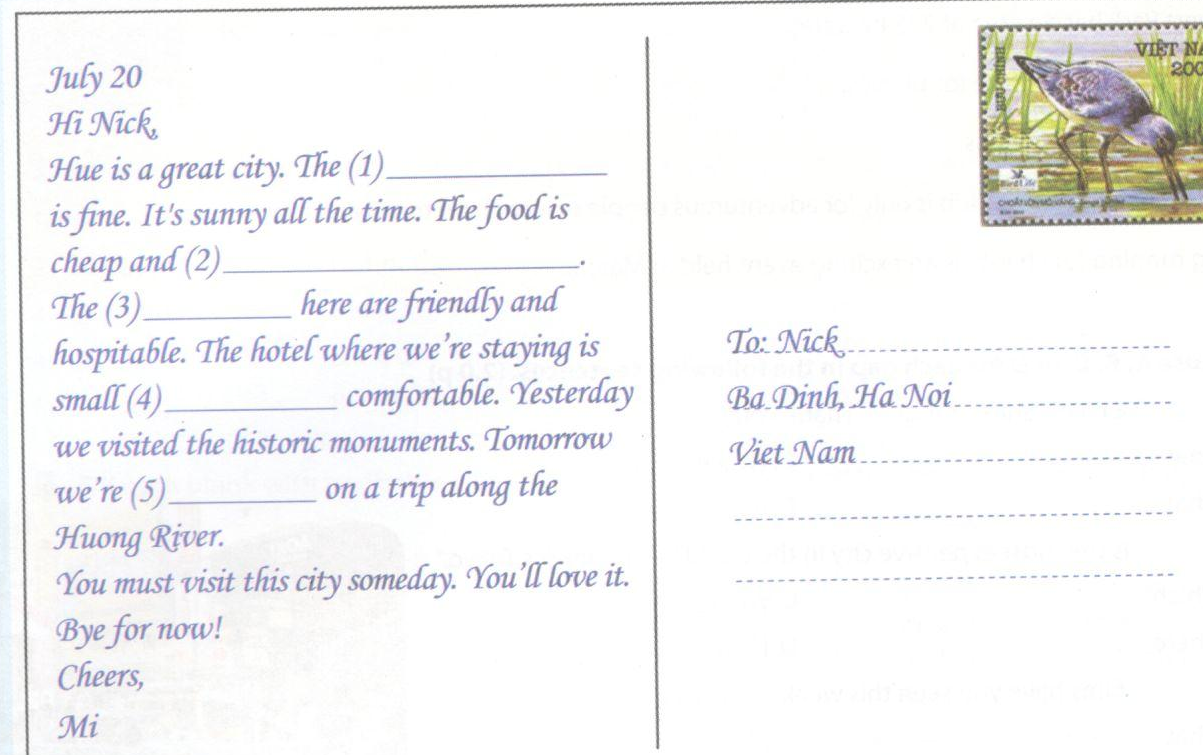 July 20
Hi Nick,
Hue is a great city. The (1)______________
is fine. It's sunny all the time. The food is
cheap and (2)______________________.
The (3)_________ here are friendly and
hospitable. The hotel where we're staying is
small (4)___________ comfortable. Yesterday
we visited the historic monuments. Tomorrow
we're (5)_________ on a trip along the
Huong River.
You must visit this city someday. You'll love it.
Bye for now!
Cheers,
Mi
VIỆT NA
200
BƯU CHÍNH
BirdLife
To: Nick
Ba Dinh, Ha Noi
Viet Nam